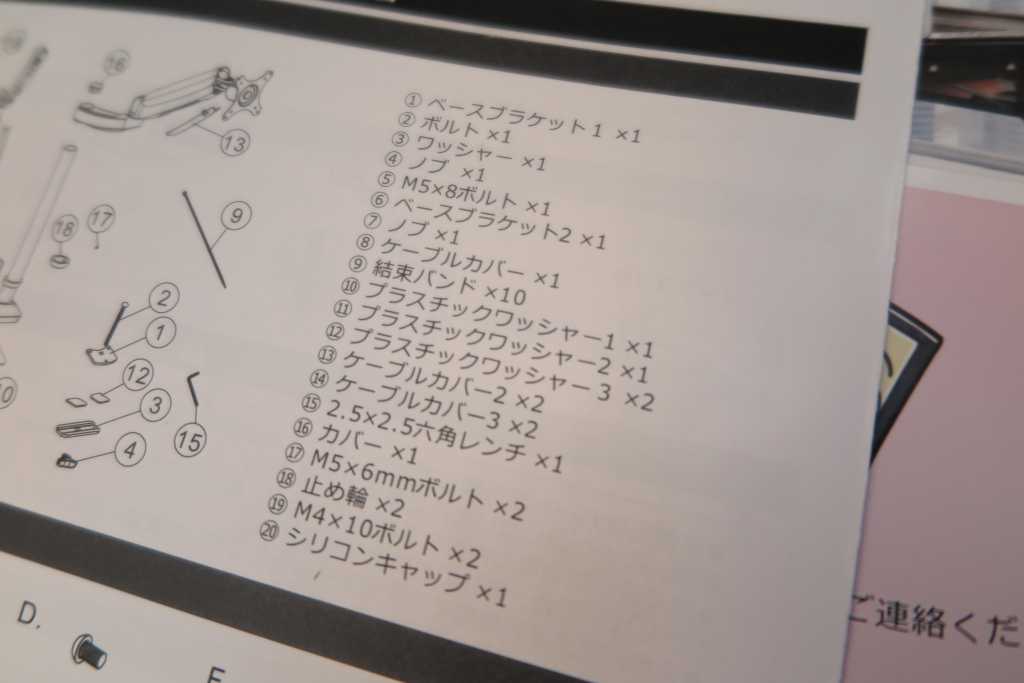 ① ベースブラケット1 ×1
② ボルト ×1
③ ワッシャー ×1
④ ノブ ×1
⑤ M5×8ボルト ×1
⑥ ベースブラケット2 ×1
⑦ ノブ ×1
⑧ ケーブルカバー ×1
⑨ 結束バンド ×10
⑩ プラスチックワッシャー1 ×1
⑪ プラスチックワッシャー2 ×1
⑫ プラスチックワッシャー3 ×2
⑬ ケーブルカバー2 ×2
⑭ ケーブルカバー3 ×2
⑮ 2.5×2.5六角レンチ ×1
⑯ カバー ×1
⑰ M5×6mmボルト ×2
⑱ 止め輪 ×2
⑲ M4×10ボルト ×2
⑳ シリコンキャップ ×1
16
13
17
18
9
2
1
12
3
15
4
D.
E
ご連絡くだ